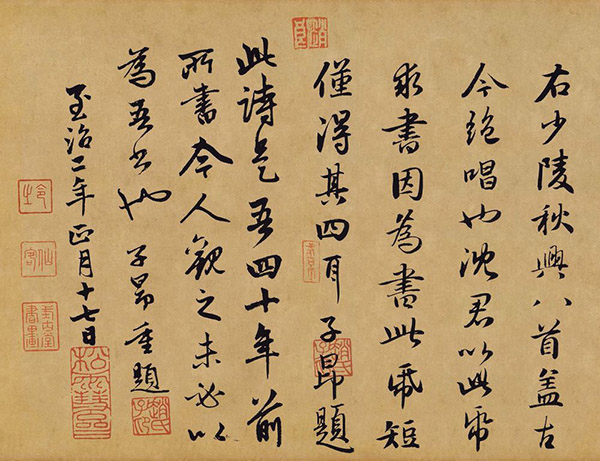 右少陵秋興八首盖古
今絶唱也沈君以此帋
求書因為書此帋短
僅得其四耳 子昂題
此詩是吾四十年前
所書今人觀之未必以
為吾書也 子昂重題
至治二年正月十七日
松雪齋